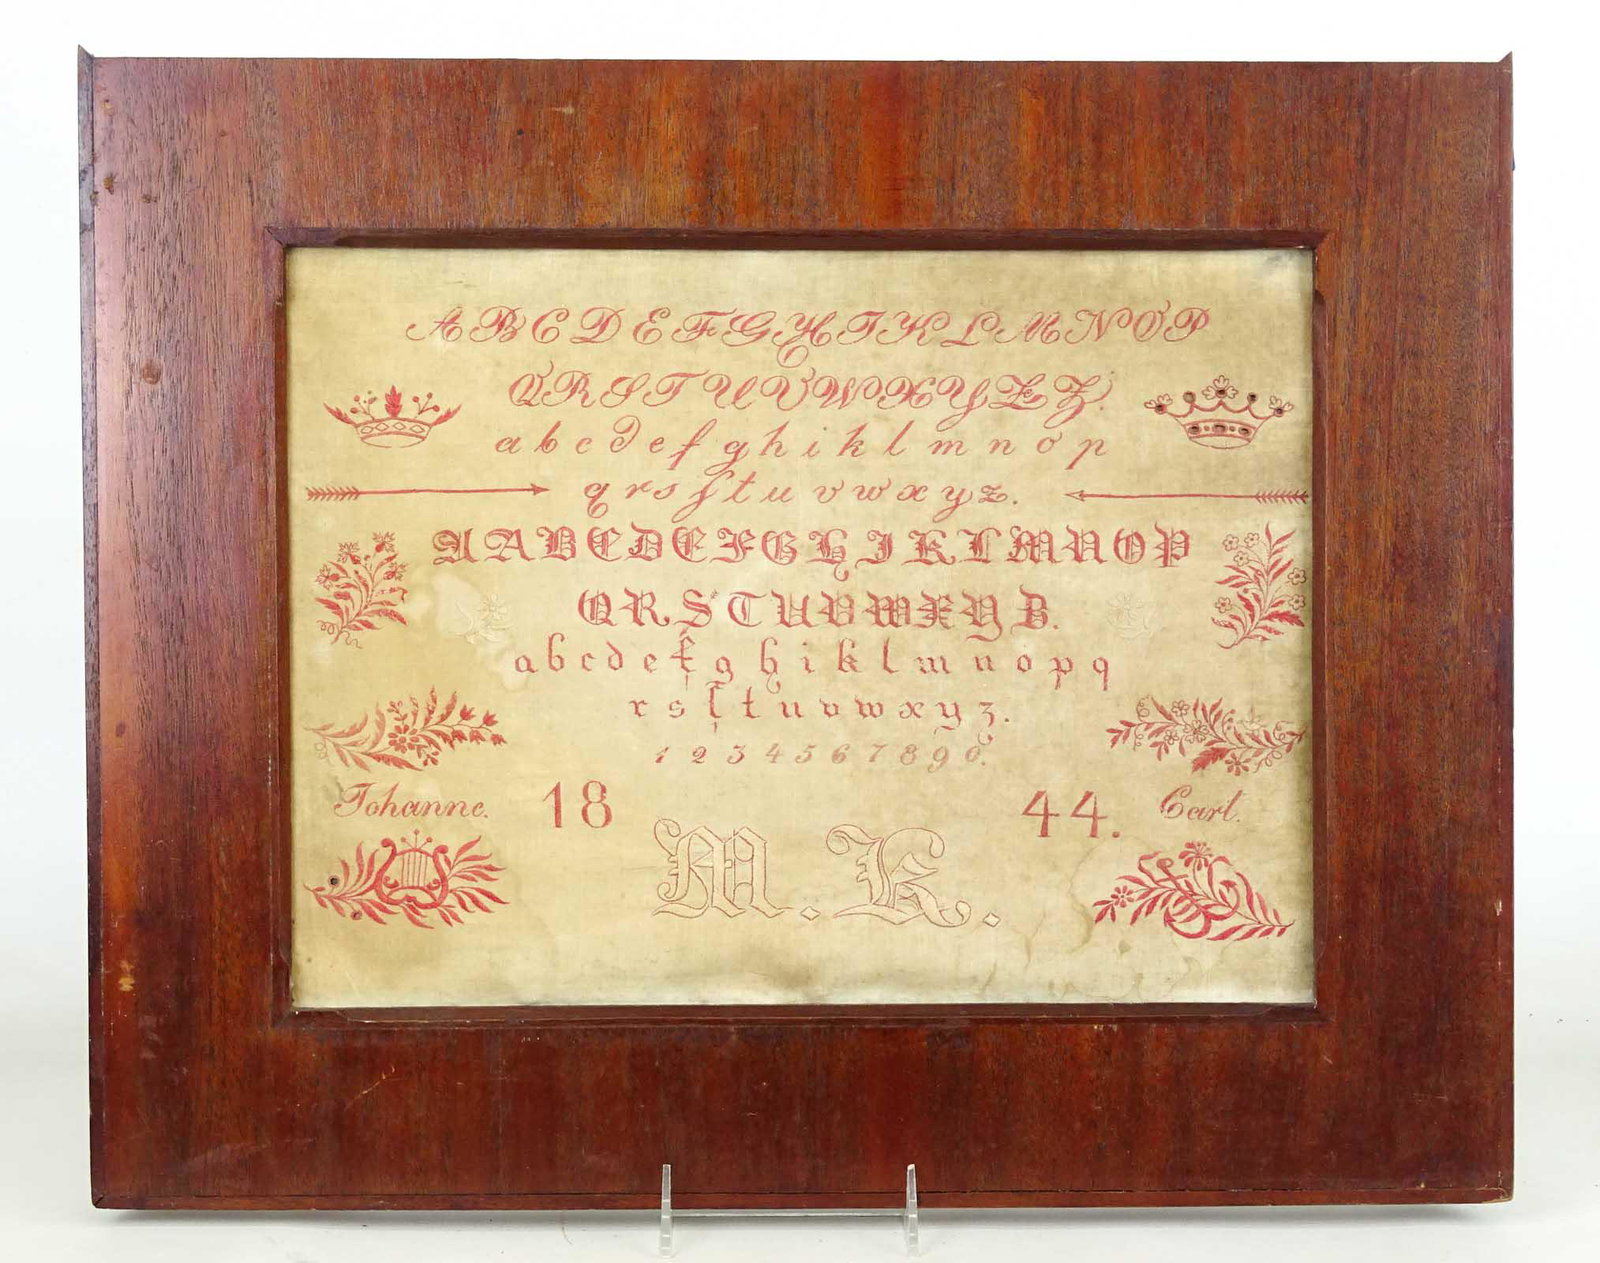 A B C D E F G H I K L M N O P
Q R S T U V W X Y Z Z
a b c d e f g h i k l m n o p
q r s ſ t u v w x y z.
A A B C D E F G H I K L M N O P
Q R S T U V W X Y Z.
a b c d e f g h i k l m n o p q
r s ſ t u v w x y z.
1 2 3 4 5 6 7 8 9 0.
Johanne. 18 44. Carl.
M. K.